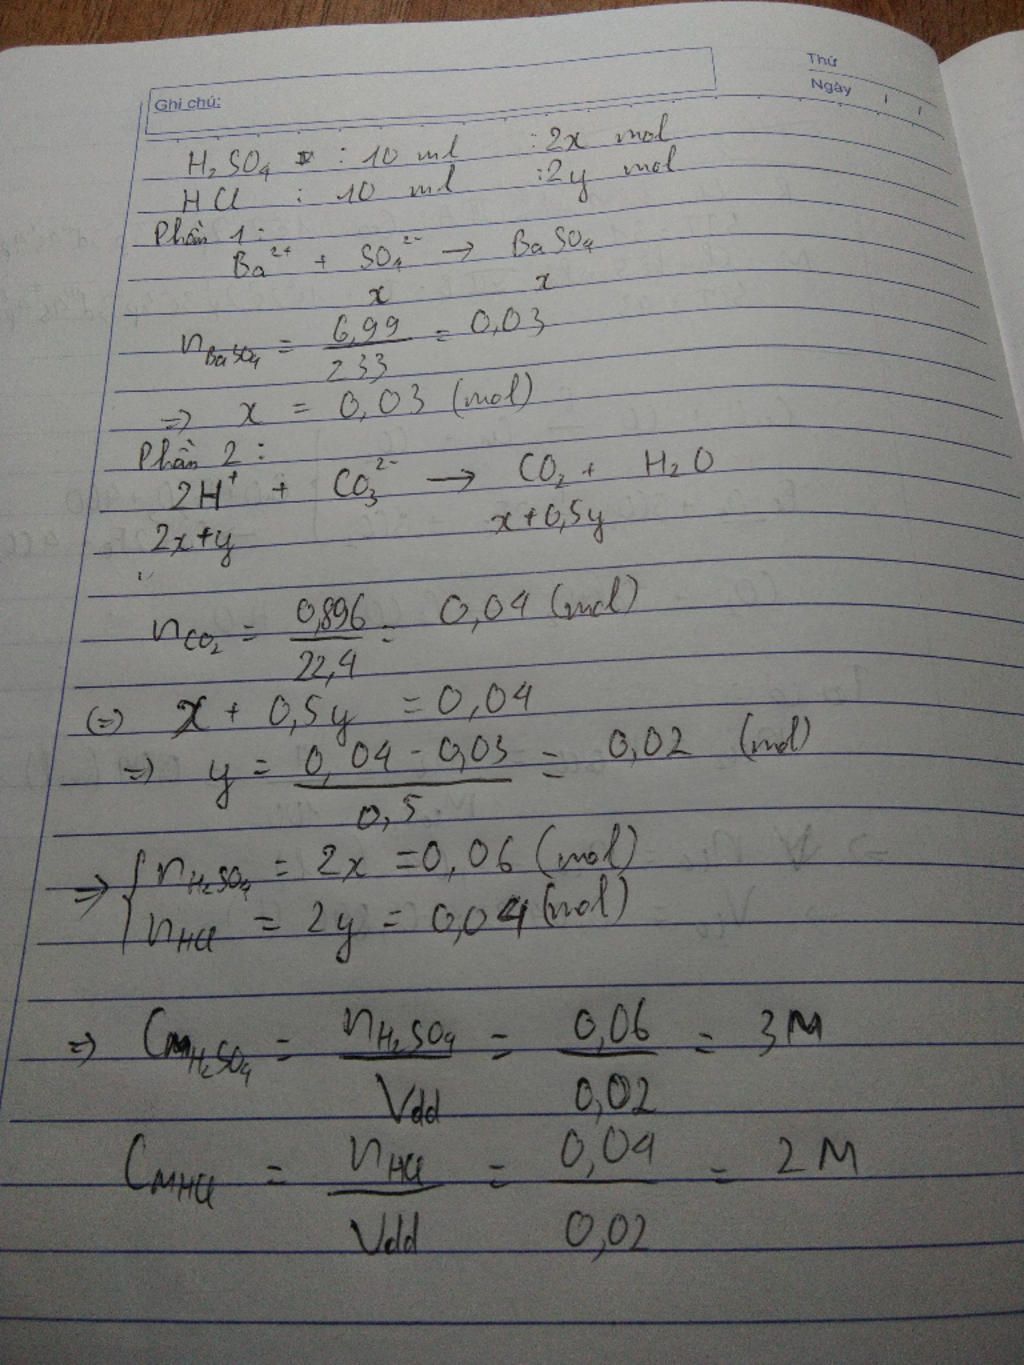 Thứ
Ngày
Ghi chú:
H₂SO₄ : 10 ml : 2x mol
HCl : 10 ml : 2y mol
Phần 1:
Ba²⁺ + SO₄²⁻ → BaSO₄
x x
n BaSO₄ = 6,99 / 233 = 0,03
=> x = 0,03 (mol)
Phần 2:
2H⁺ + CO₃²⁻ → CO₂ + H₂O
2x+y x+0,5y
n CO₂ = 0,896 / 22,4 = 0,04 (mol)
(=) x + 0,5y = 0,04
=> y = 0,04 - 0,03 / 0,5 = 0,02 (mol)
=> { n H₂SO₄ = 2x = 0,06 (mol)
n HCl = 2y = 0,04 (mol)
=> CM H₂SO₄ = n H₂SO₄ / Vdd = 0,06 / 0,02 = 3M
CM HCl = n HCl / Vdd = 0,04 / 0,02 = 2M